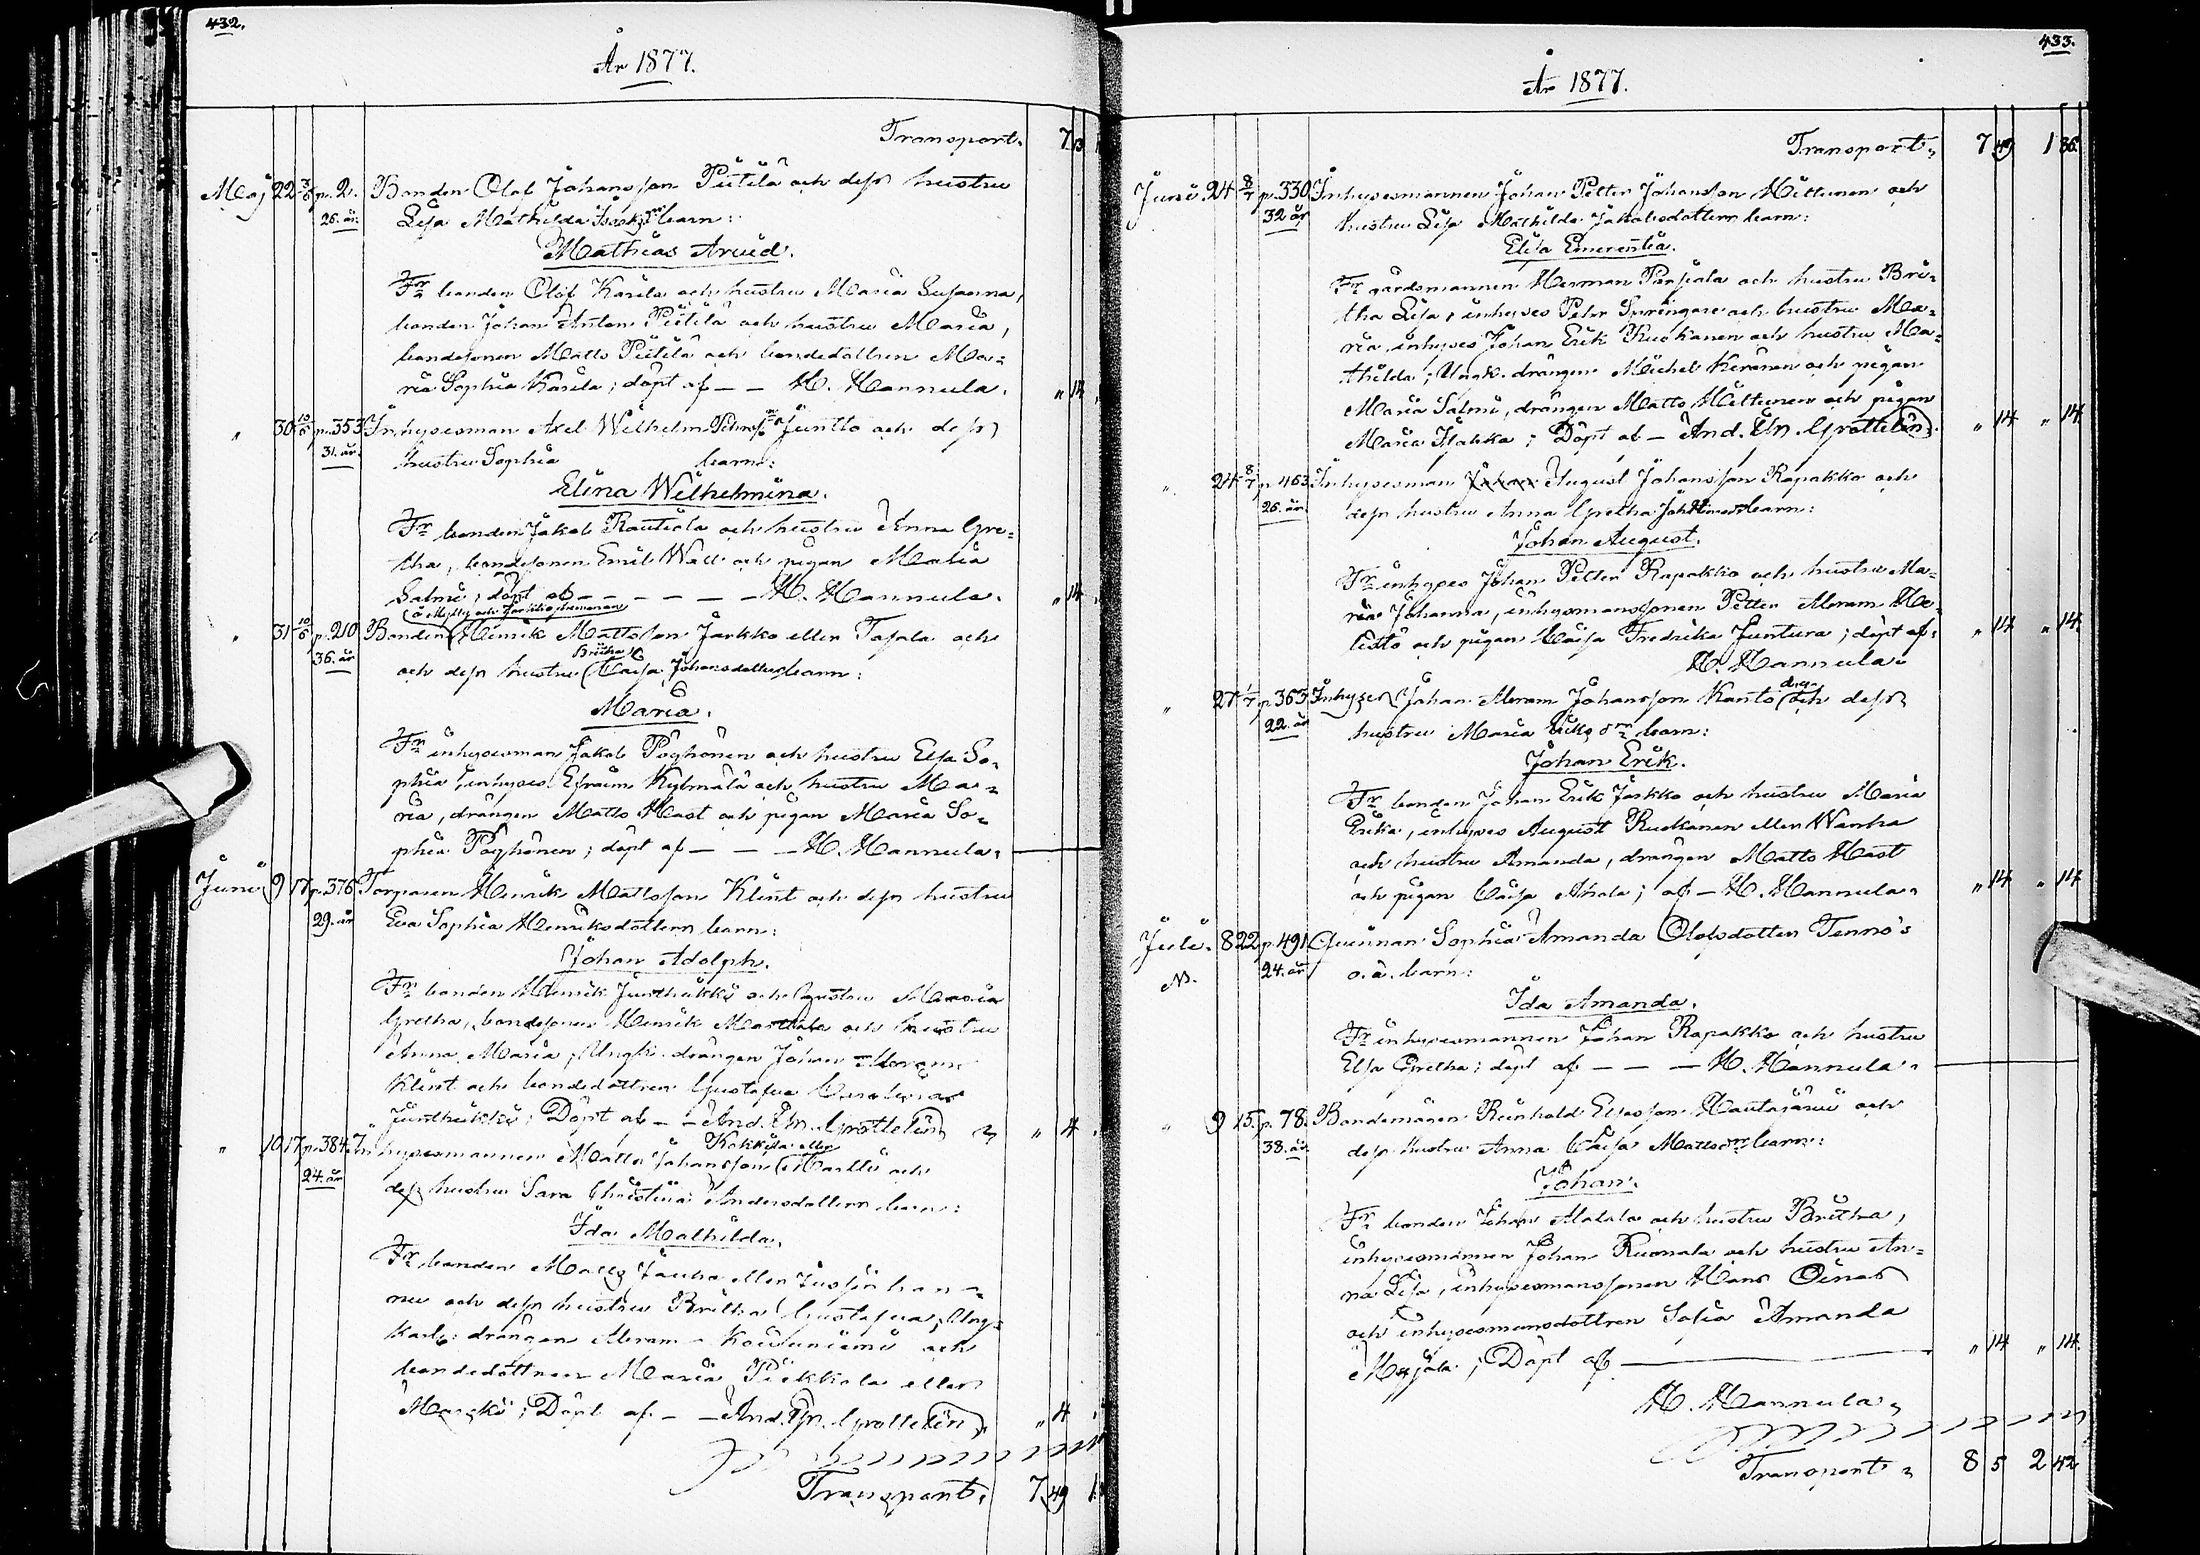 432.
År 1877.
Transport. 7 13
Maj 22 3/6 p. 2. Bonden Olof Johansson Piitilä och dess hustru
26. år. Lisa Mathilda barn:
Mathias Arvid.
Fr bonden Olof Karila och hustru Maria Susanna,
bonden Johan Anton Piitilä och hustru Maria,
bondesonen Matts Piitilä och bondedottren Ma=
ria Sophia Karila; döpt af — — H. Hannula. " 14
" 30 10/6 p. 353 Inhysesman Axel Wilhelm Juntto och dess
31. år. hustru Sophia barn:
Elina Wilhelmina.
Fr bonden Jakob Rautiola och hustru Anna Gre=
tha, bondesonen Emil Wall och pigan Maria
Salmi; döpt af — — — — — H. Hannula. " 14
" 31 10/6 p. 210 Bonden Henrik Mattsson Jarkko eller Tasala och
36. år Britha
och dess hustru Caisa Johansdotters barn:
Maria.
Fr inhysesman Jakob Pöyhönen och hustru Elsa So=
phia, inhyses Efraim Kylmälä och hustru Ma=
ria, drängen Matts Mast och pigan Maria So=
phia Pöyhönen; döpt af — — — H. Hannula.
Juni 9 17 p. 376 Torparen Henrik Mattsson Klint och dess hustru
29. år Eva Sophia Henriksdotters barn:
Johan Adolph.
Fr bonden Henrik Junthikki och hustru Maria
Gretha, bondesonen Henrik Marttala och hustru
Anna Maria; Ungk. drängen Johan Abram
Klint och bondedottren Gustafva Carolina
Junthikki; Döpt af — — And. Em. Grottelin " 4
" 10 17 p. 384. Inhysesmannen Matts Johansson Martti och
24. år
dess hustru Sara Christina Andersdotters barn:
Ida Mathilda.
Fr bonden Matts eller
nu och dess hustru Britha Gustafva; Ung=
karls: drängen Abram Koivuniemi och
bondedottren Maria Piekkola eller
Marski; Döpt af — — And. Em. Grottelin " 4
Transport. 7 49 1
433.
År 1877.
Transport. 7 49 1 86.
Juni. 24 8/7 p. 330 Inhysesmannen Johan Petter Johansson Mittunen och
32 år hustru Lisa Mathilda Jakobsdotters barn:
Elisa Emerentia.
Fr gårdsmannen Herman Parpala och hustru Bri=
tha Lisa, inhyses Petter Springare och hustru Ma=
ria, inhyses Johan Erik Ruokanen och hustru Ma=
thilda; Ungk. drängen Michel Keränen och pigan
Maria Salmi, drängen Matts Mittunen och pigan
Maria Isakka; Döpt af — And. Em. Grottelin. " 14 " 14.
" 24 8/7 p. 463 Inhysesman August Johansson Rapakko och
26. år. dess hustru Anna Gretha barn:
Johan August.
Fr inhyses Johan Petter Rapakko och hustru Ma=
ria Johanna, inhysmanssonen Petter Abram He=
listö och pigan Caisa Fredrika Juntura; döpt af: " 14 " 14.
H. Hannula.
" 27 1/7 p. 363 Inhyses Johan Abram Johansson Kanto och dess
22. år hustru Maria barn:
Johan Erik.
Fr bonden Johan Erik Jarkko och hustru Maria
Erika, inhyses August Ruokanen eller Wanha
och hustru Amanda, drängen Matts Mast
och pigan Caisa Ahola; af — H. Hannula. " 14 " 14
Juli. 8 22 p. 491 Qvinnan Sophia Amanda Olofsdotter Tenno's
N. 24. år o. ä. barn:
Ida Amanda.
Fr inhysesmannen Johan Rapakko och hustru
Elsa Gretha; döpt af — — — H. Hannula.
" 9 15. p. 78. Bondemågen Reinhold Eliasson Hautajärvi och
38. år. dess hustru Anna Caisa barn:
Johan.
Fr bonden Johan Alatalo och hustru Britha,
inhysesmannen Johan Ruonala och hustru An=
na Lisa, inhysesmanssonen Hans Oinas
och inhysesmansdottren Sofia Amanda
Marjala; Döpt af — " 14 " 14.
H. Hannula.
Transport. 8 5 2 42